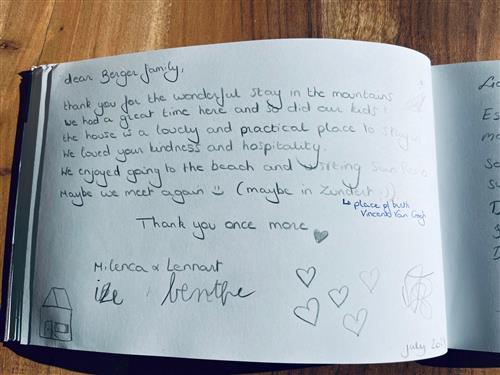 dear Berger family,
thank you for the wonderful stay in the mountains
we had a great time here and so did our kids!
the house is a lovely and practical place to stay in
We loved your kindness and hospitality.
We enjoyed going to the beach and visiting San
Maybe we meet again (maybe in Zundert :))
↳ place of birth
Vincent Van Gogh
Thank you once more
Milenca & Lennart
benthe
july
Es